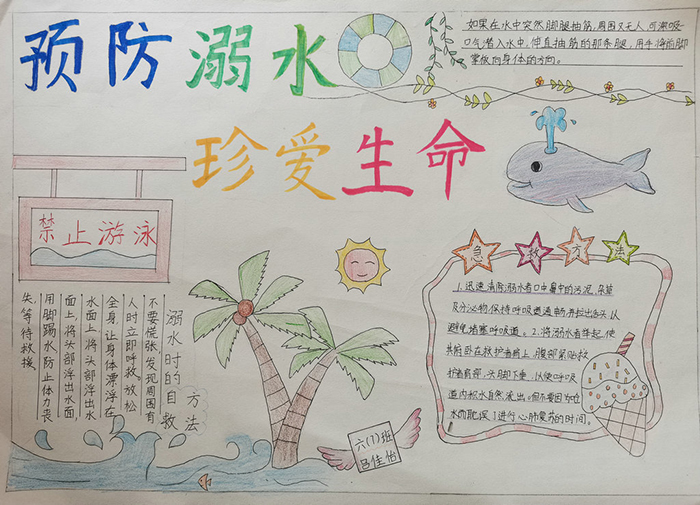 预防溺水
珍爱生命
如果在水中突然脚腿抽筋,周围又无人,可深吸
口气潜入水中,伸直抽筋的那条腿,用手将前脚
掌板向身体的方向。
禁止游泳
溺水时的自救方法
不要慌张发现周围有
人时立即呼救放松
全身,让身体漂浮在
水面上,将头部浮出水
面上,将头部浮出水面,
用脚踢水防止体力丧
失,等待救援
急救方法
1.迅速清除溺水者口中鼻中的污泥、杂草
及分泌物,保持呼吸道通畅,并拉出舌头,以
避免堵塞呼吸道。2.将溺水者举起,使
其俯卧在救护者肩上,腹部紧贴救
护者肩部,头脚下垂,以使呼吸
道内积水自然流出。但不要因为呛
水而耽误了进行心肺复苏的时间。
六(7)班
吕佳怡